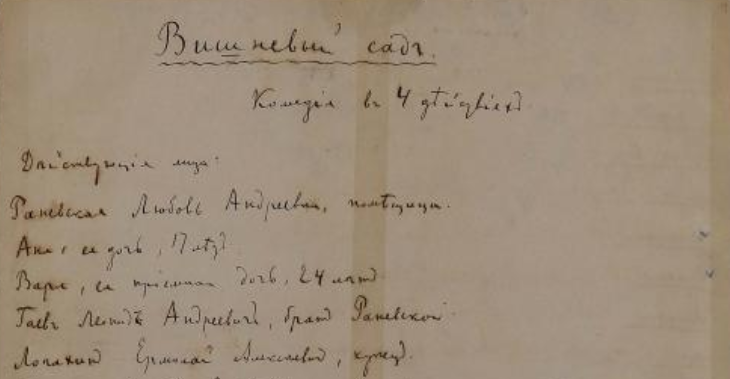 Вишневый садъ.
Комедія въ 4 дѣйствіяхъ
Дѣйствующія лица:
Раневская Любовь Андреевна, помѣщица.
Аня, ея дочь, 17 лѣтъ.
Варя, ея пріемная дочь, 24 лѣтъ
Гаевъ Леонидъ Андреевичъ, братъ Раневской
Лопахинъ Ермолай Алексѣевичъ, купецъ.